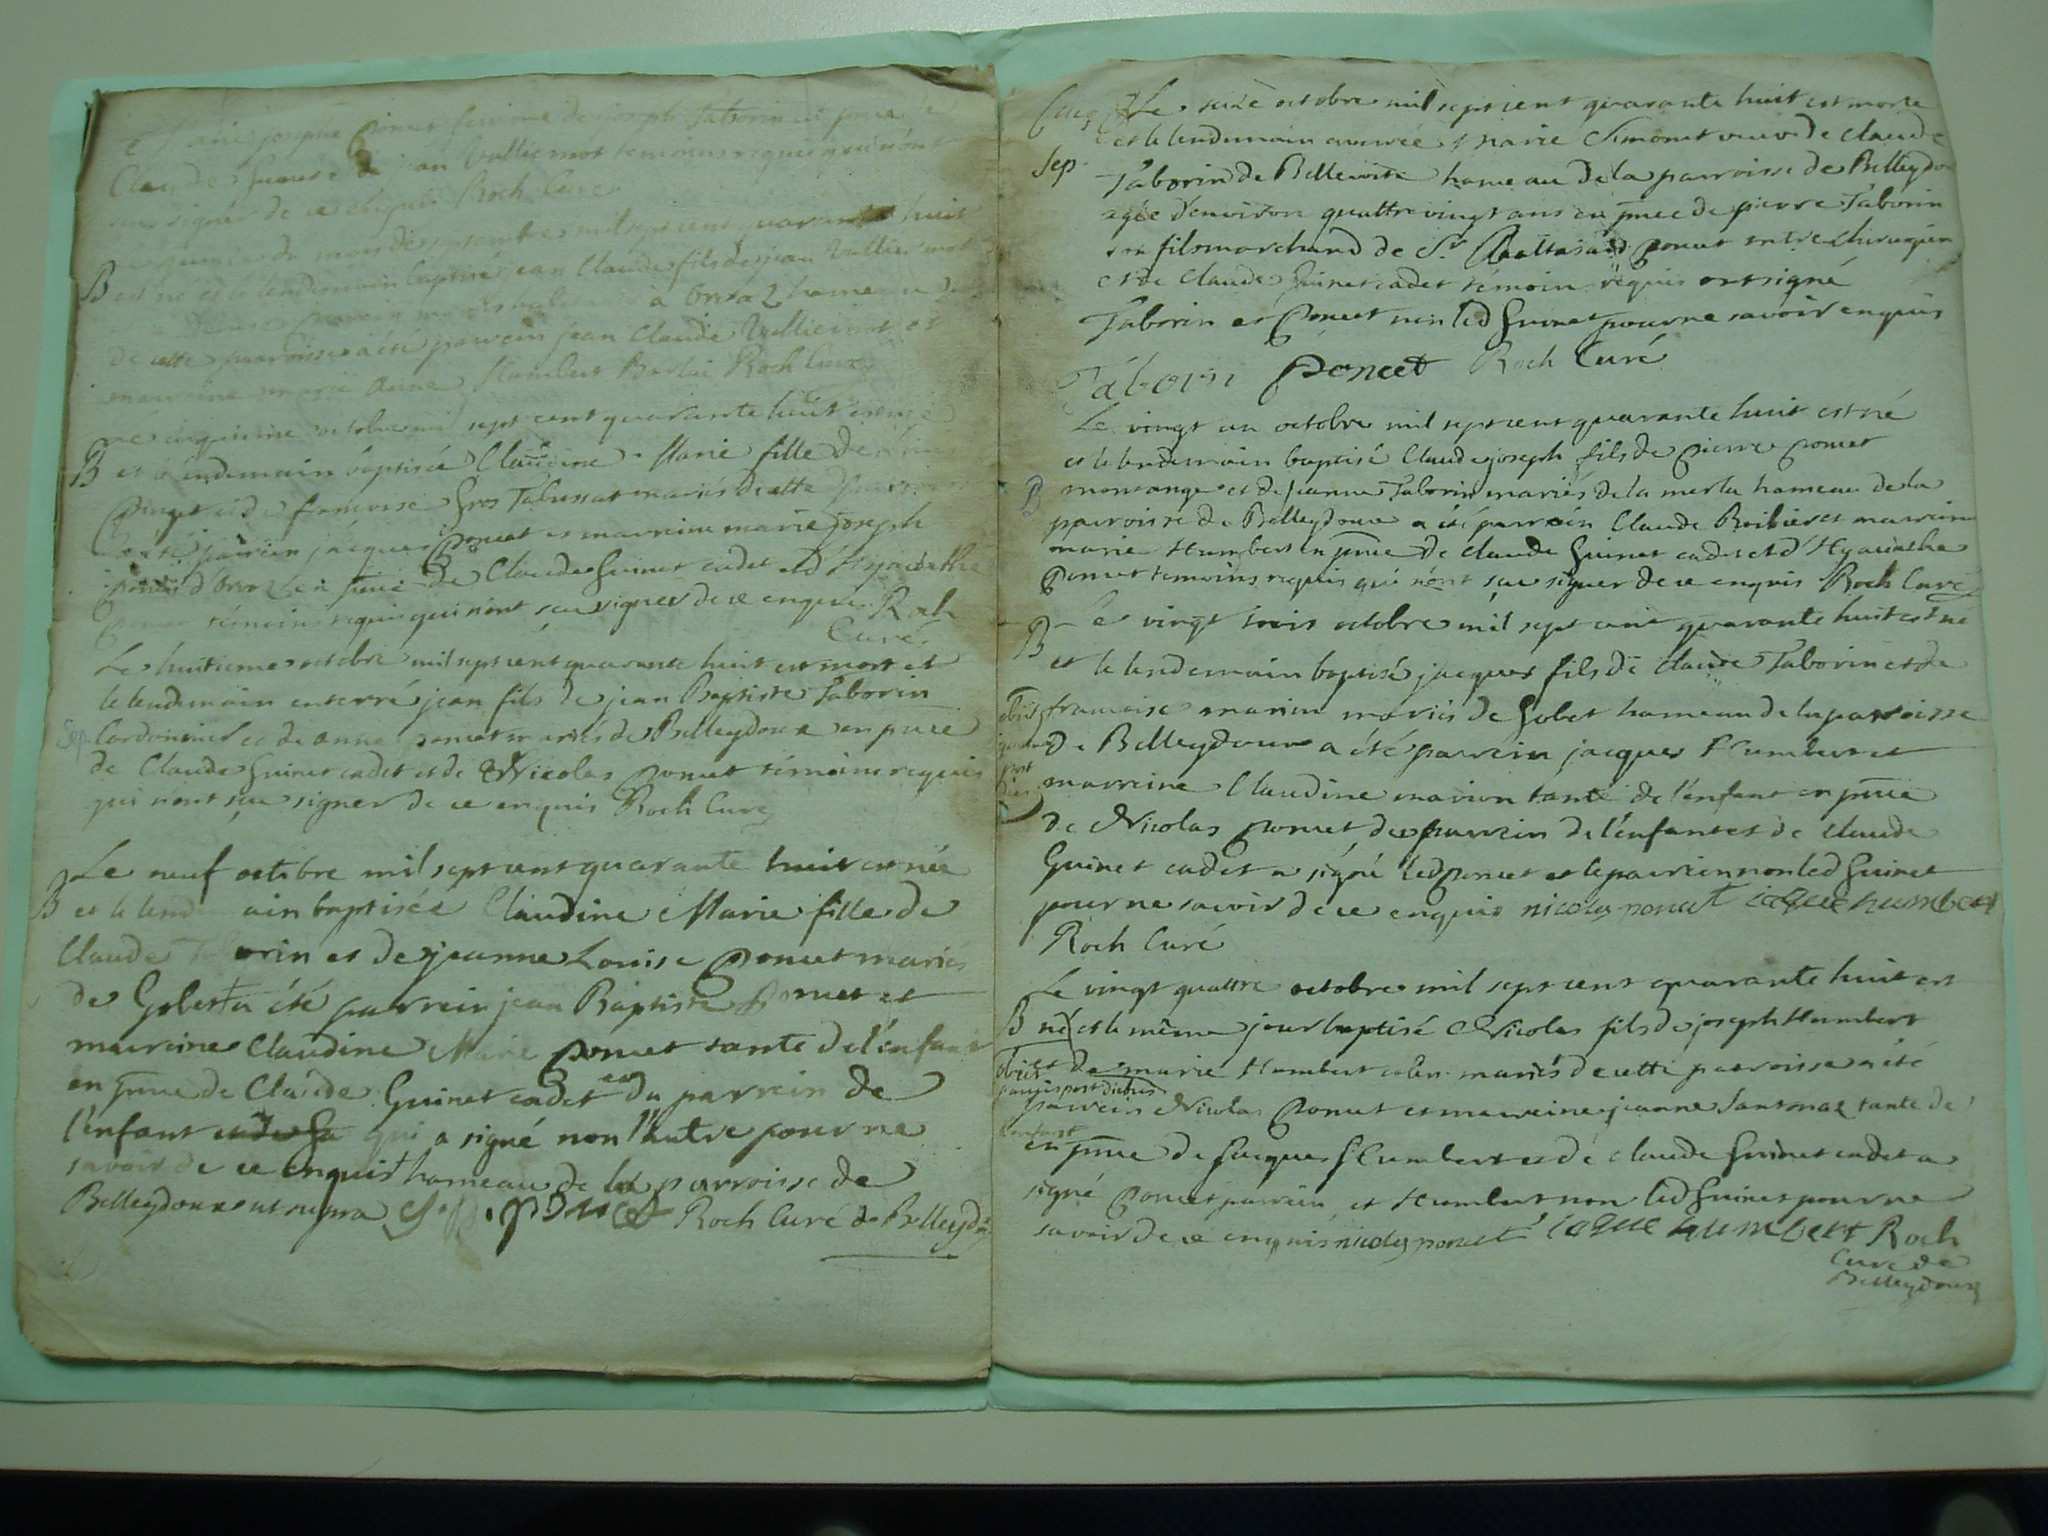 marie josephe Poncet femme de joseph Taborin en pnce de
Claude Guinet de jean Vuilliermot temoins requis qui n'ont
sceu signer de ce enquis Roch Curé
du mois de septembre mil sept cent quarante huit
B est né et le lendemain baptisé jean Claude fils de jean Vuilliermot
a Orvaz hameau
de cette parroisse a été parrein jean Claude Vuilliermot et
marreine marie Anne Humbert Roch Curé
cinquieme octobre mil sept cent quarante huit est née
B et le lendemain baptisée Claudine Marie fille de
et de francoise Gros Tabussat mariés de cette
a été parrein jacques Poncet et marreine marie joseph
Poncet d'Orvaz en pnce de Claude Guinet cadet et d'Hyacinthe
Poncet témoins requis qui n'ont sceu signer de ce enquis Roch
Curé
Le huitieme octobre mil sept cent quarante huit est mort et
le lendemain enterré jean fils de jean Baptiste Taborin
Sep. Cordonnier et de anne poncet mariés de Belleydoux en pnce
de Claude Guinet cadet et de Nicolas Poncet témoins requis
qui n'ont sçu signer de ce enquis Roch Curé
Le neuf octobre mil sept cent quarante huit est née
B et le lendemain baptisée Claudine Marie fille de
Claude Taborin et de jeanne Louise Poncet mariés
de Gobet+ a été parrein jean Baptiste Poncet et
marreine Claudine Marie Poncet tante de l'enfant
en pnce de Claude Guinet cadet et du parrein de
l'enfant qui a signé non l'autre pour ne
savoir de ce enquis + hameau de la parroisse de
Belleydoux ut supra poncet Roch Curé de Belleydoux
Le seize octobre mil sept cent quarante huit est morte
et le lendemain enterrée marie Simonet veuve de Claude
Sep. Taborin de Bellevoite hameau de la parroisse de Belleydoux
agée d'environ quattre vingt ans en pnce de pierre Taborin
son fils marchand de Sr. Baltasard Poncet mtre chirurgien
et de Claude Guinet cadet témoin requis ont signé
Taborin et Poncet non led Guinet pour ne savoir enquis
Taborin Poncet Roch Curé
Le vingt un octobre mil sept cent quarante huit est né
et le lendemain baptisé Claude joseph fils de Pierre Poncet
B montange et de jeanne Taborin mariés de la merla hameau de la
parroisse de Belleydoux a été parrein Claude et marreine
marie Humbert en pnce de Claude Guinet cadet et d'Hyacinthe
Poncet temoins requis qui n'ont sçu signer de ce enquis Roch Curé
B Le vingt trois octobre mil sept cent quarante huit est né
et le lendemain baptisé jacques fils de Claude Taborin et de
obiit francoise marion mariés de Gobet hameau de la parroisse
de Belleydoux a été parrein jacques Humbert et
post dies marreine Claudine marion tante de l'enfant en pnce
de Nicolas Poncet de parrein de l'enfant et de Claude
Guinet cadet a signé led Poncet et le parrein non led Guinet
pour ne savoir de ce enquis nicolas poncet iaque humbert
Roch Curé
Le vingt quattre octobre mil sept cent quarante huit est
B né et le même jour baptisé Nicolas fils de joseph Humbert
obiit et de marie Humbert mariés de cette parroisse a été
paucis post diebus
parrein Nicolas Poncet et marreine jeanne tante de
l'enfant
en pnce de Jacques Humbert et de Claude Guinet cadet a
signé Poncet parrein et Humbert non led Guinet pour ne
savoir de ce enquis nicolas poncet iaque humbert Roch
Curé de
Belleydoux